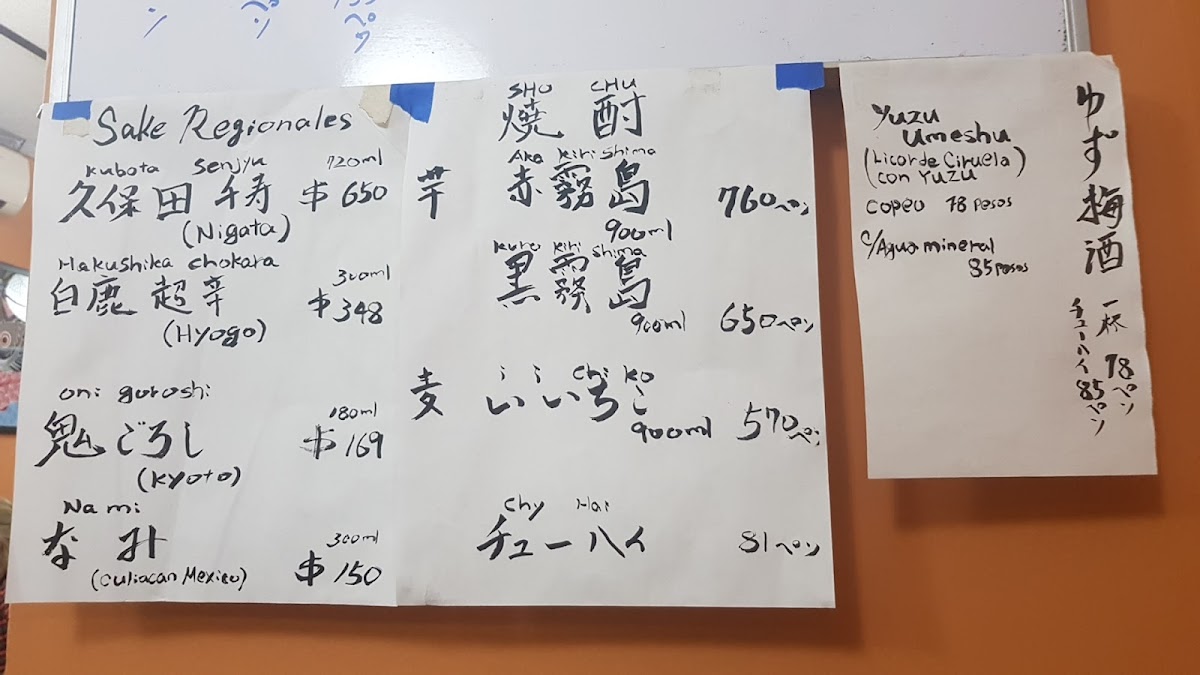 Sake Regionales
Kubota Senjyu 720ml
久保田 千寿 $650
(Nigata)
Hakushika chokara 300ml
白鹿 超辛 $348
(Hyogo)
oni goroshi 180ml
鬼ごろし $169
(Kyoto)
Nami 300ml
なみ $150
(Culiacan Mexico)
SHO CHU
焼酎
Aka kirishima
芋 赤霧島 760ペソ
900ml
Kuro kirishima
黒霧島
900ml 650ペソ
ii chiko
麦 いいちこ 570ペソ
900ml
Chy Hai
チューハイ 81ペソ
Yuzu
Umeshu
(Licor de Ciruela)
con YUZU
copeo 78 pesos
c/Agua mineral
85 pesos
ゆず梅酒
一杯 78ペソ
チューハイ 85ペソ